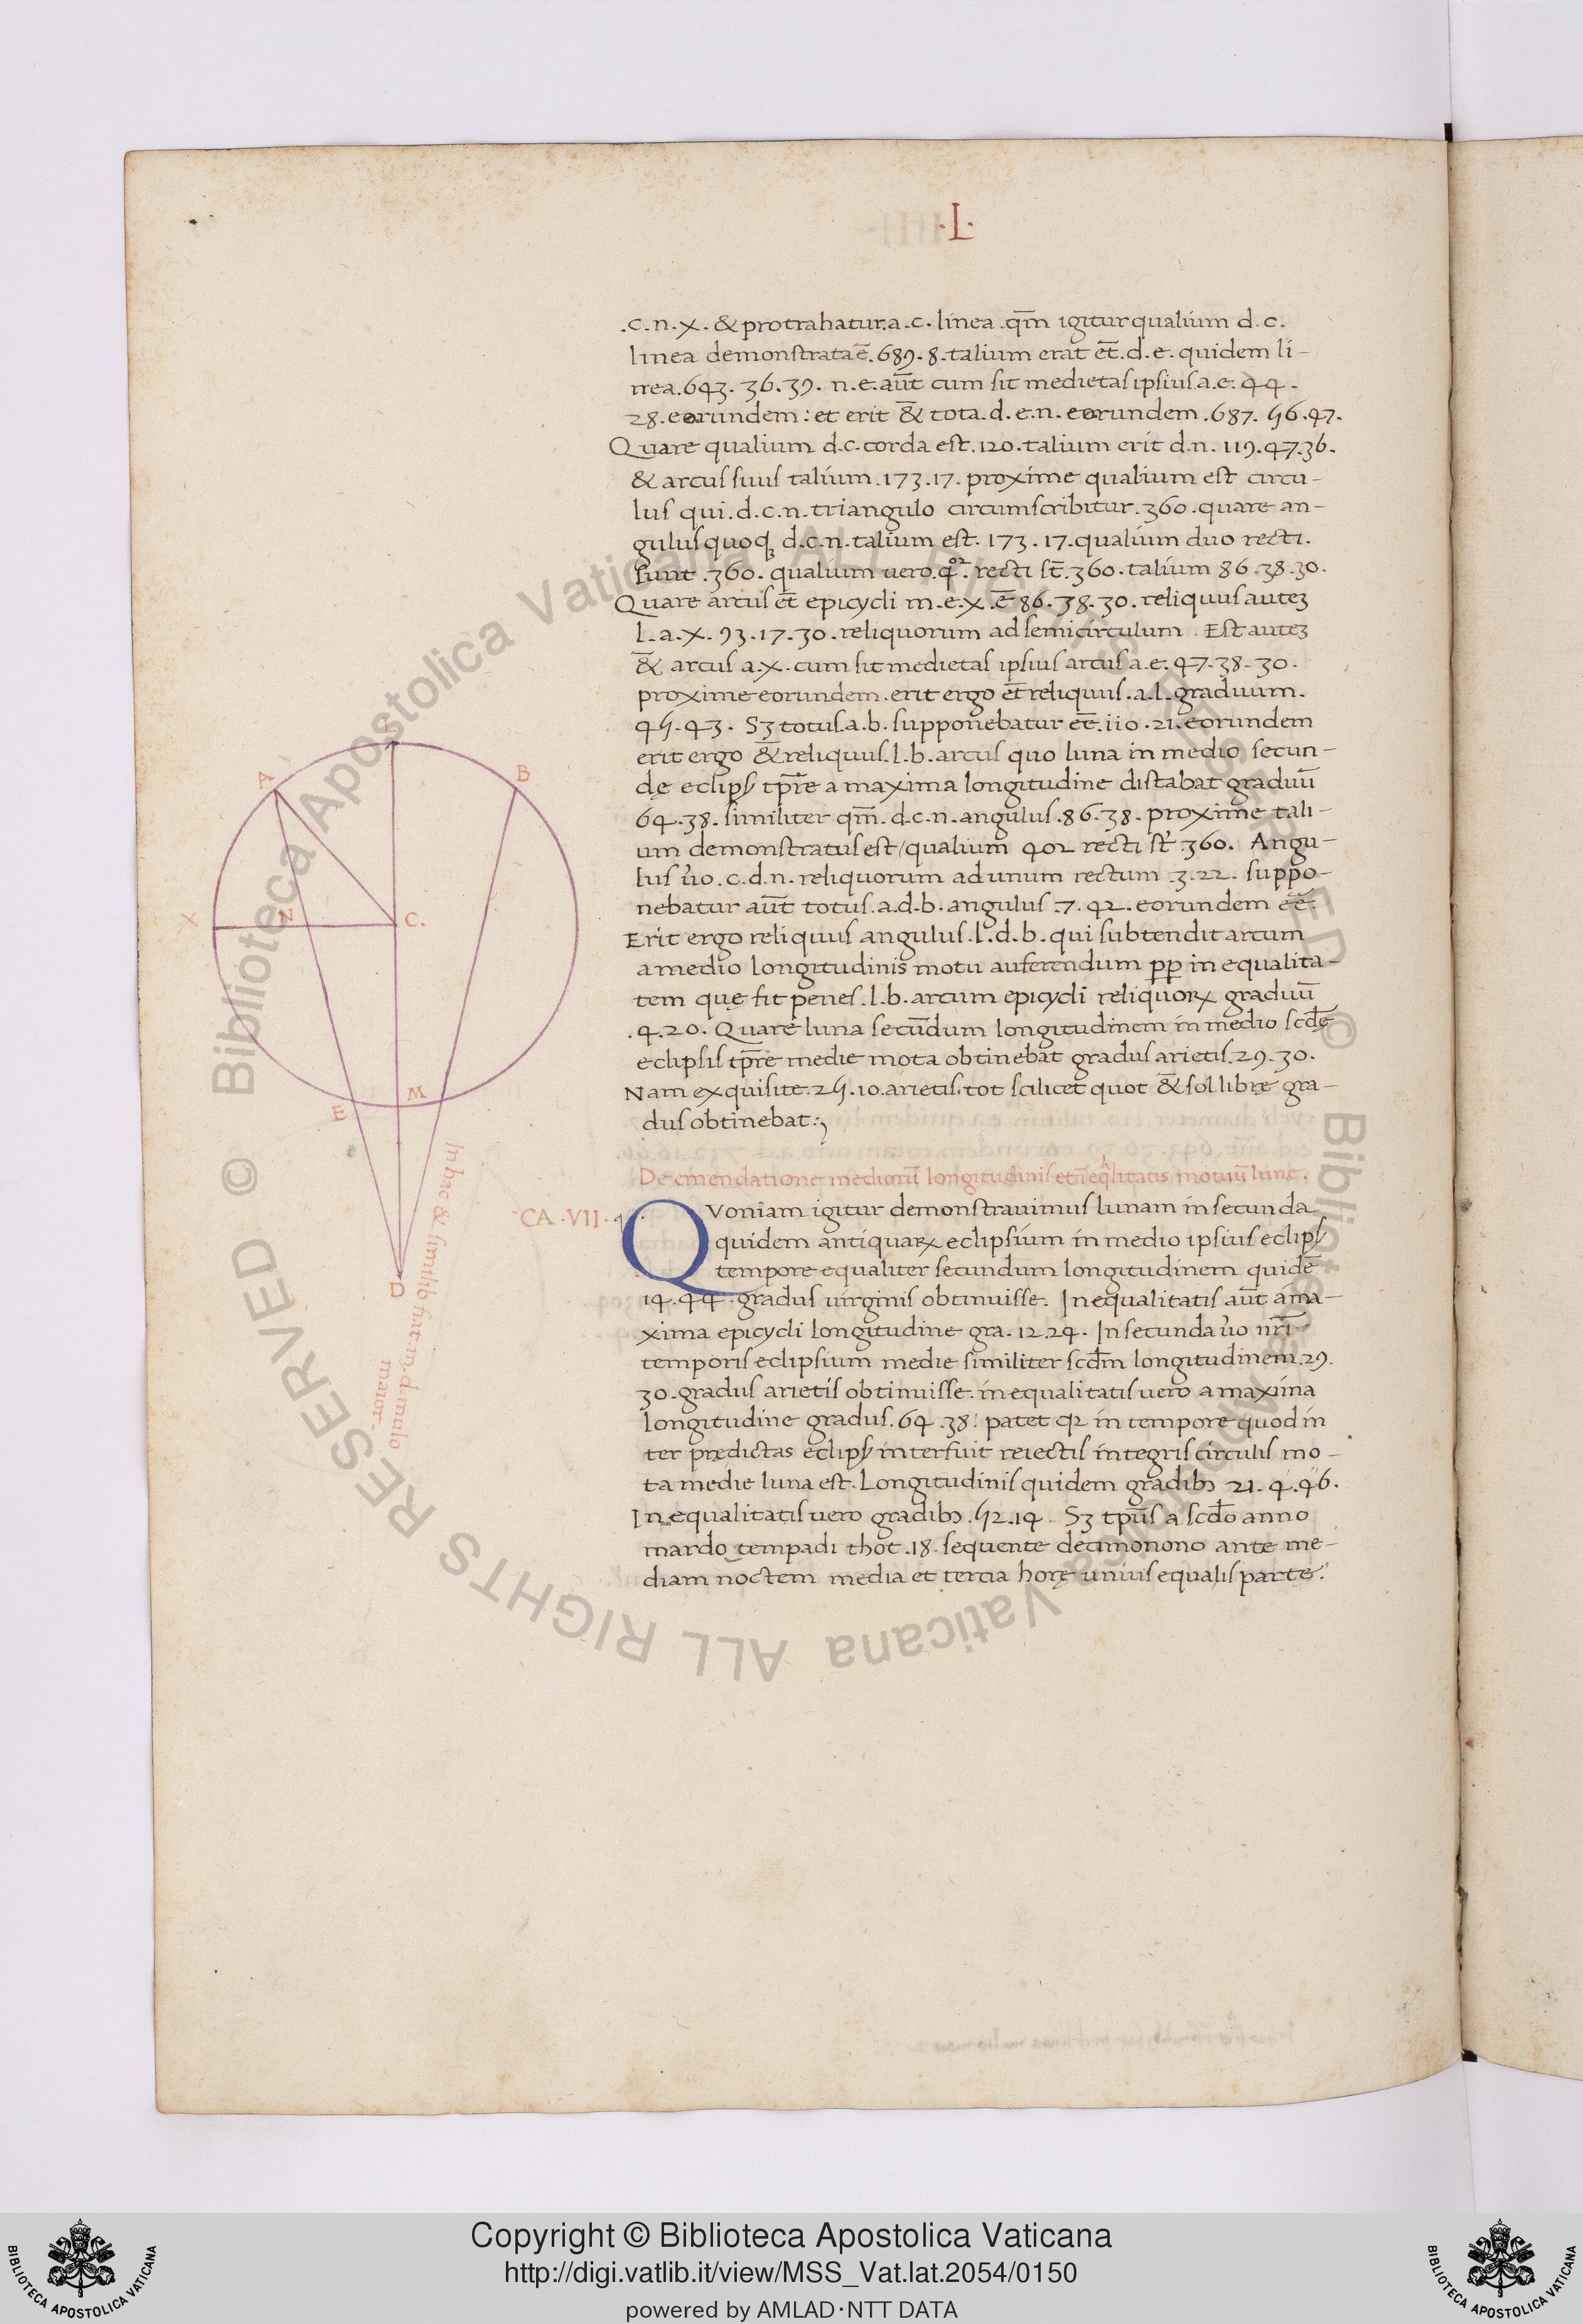 ·L·
.c.n.x. & protrahatur.a.c. linea .qm̄ igitur qualium d.c.
linea demonstrata ē.689.8.talium erat et̄.d.e. quidem li-
nea.643.36.39. n.e.aūt cum sit medietas ipsius.a.e.44.
28.eorundem: et erit & tota.d.e.n.eorundem.687.56.47.
Quare qualium d.c.corda est.120.talium erit d.n.119.47.36.
& arcus suus talium.173.17. proxime qualium est circu-
lus qui.d.c.n.triangulo circumscribitur.360.quare an-
gulus quoqꝫ d.c.n.talium est.173.17.qualium duo recti.
sunt.360. qualium vero.qꝛ. recti st̄.360.talium 86.38.30.
Quare arcus et̄ epicycli m.e.x.ē 86.38.30.reliquus auteꝫ
l.a.x.93.17.30.reliquorum ad semicirculum. Est auteꝫ
& arcus a.x.cum sit medietas ipsius arcus a.e.47.38.30.
proxime eorundem.erit ergo et̄ reliquus.a.l.graduum.
45.43. Sꝫ totus.a.b. supponebatur eē.110.21.eorundem
erit ergo & reliquus.l.b.arcus quo luna in medio secun-
dę eclipſ tpr̄e a maxima longitudine distabat graduū
64.38. similiter qm̄.d.c.n.angulus.86.38.proxime tali-
um demonstratus est/qualium 4oꝛ recti st̄.360. Angu-
lus ůo.c.d.n.reliquorum ad unum rectum.3.22. suppo-
nebatur aūt totus.a.d.b.angulus.7.42.eorundem eē.
Erit ergo reliquus angulus.l.d.b.qui subtendit arcum
a medio longitudinis motu auferendum p̄p̄ inequalita-
tem quę fit penes.l.b.arcum epicycli reliquoꝝ graduū
.4.20. Quare luna secundum longitudinem in medio scd̄ę
eclipsis tpr̄e medie mota obtinebat gradus arietis.29.30.
Nam exquisite.25.10.arietis.tot scilicet quot & sol librę gra-
dus obtinebat:,
De emendatione mediorū longitudinis et īeq̄litatis motuū lune.
CA.VII.
Quoniam igitur demonstravimus lunam in secunda
quidem antiquaꝝ eclipsium in medio ipsius eclipſ
tempore equaliter secundum longitudinem quidē
14.44.gradus virginis obtinuisse. Inequalitatis aūt a ma-
xima epicycli longitudine gra.12.24. In secunda ůo nr̄i
temporis eclipsium medie similiter scd̄m longitudinem.29.
30.gradus arietis obtinuisse.inequalitatis vero a maxima
longitudine gradus.64.38. patet qꝛ in tempore quod in
ter prędictas eclipſ interfuit reiectis integris circulis mo-
ta medie luna est. Longitudinis quidem gradibꝫ 21.4.46.
Inequalitatis vero gradibꝫ.52.14. Sꝫ tp̄us a scd̄o anno
mardo ҫempadi thot.18.sequente decimonono ante me-
diam noctem media et tercia horę unius equalis parte.
A
B
X
N
C.
E
M
D
In hac & similibꝫ fiat m.d.multo
maior.
Copyright © Biblioteca Apostolica Vaticana
http://digi.vatlib.it/view/MSS_Vat.lat.2054/0150
powered by AMLAD·NTT DATA
BIBLIOTECA APOSTOLICA VATICANA
BIBLIOTECA APOSTOLICA VATICANA
© Biblioteca Apostolica Vaticana ALL RIGHTS RESERVED © Biblioteca Apostolica Vaticana ALL RIGHTS RESERVED